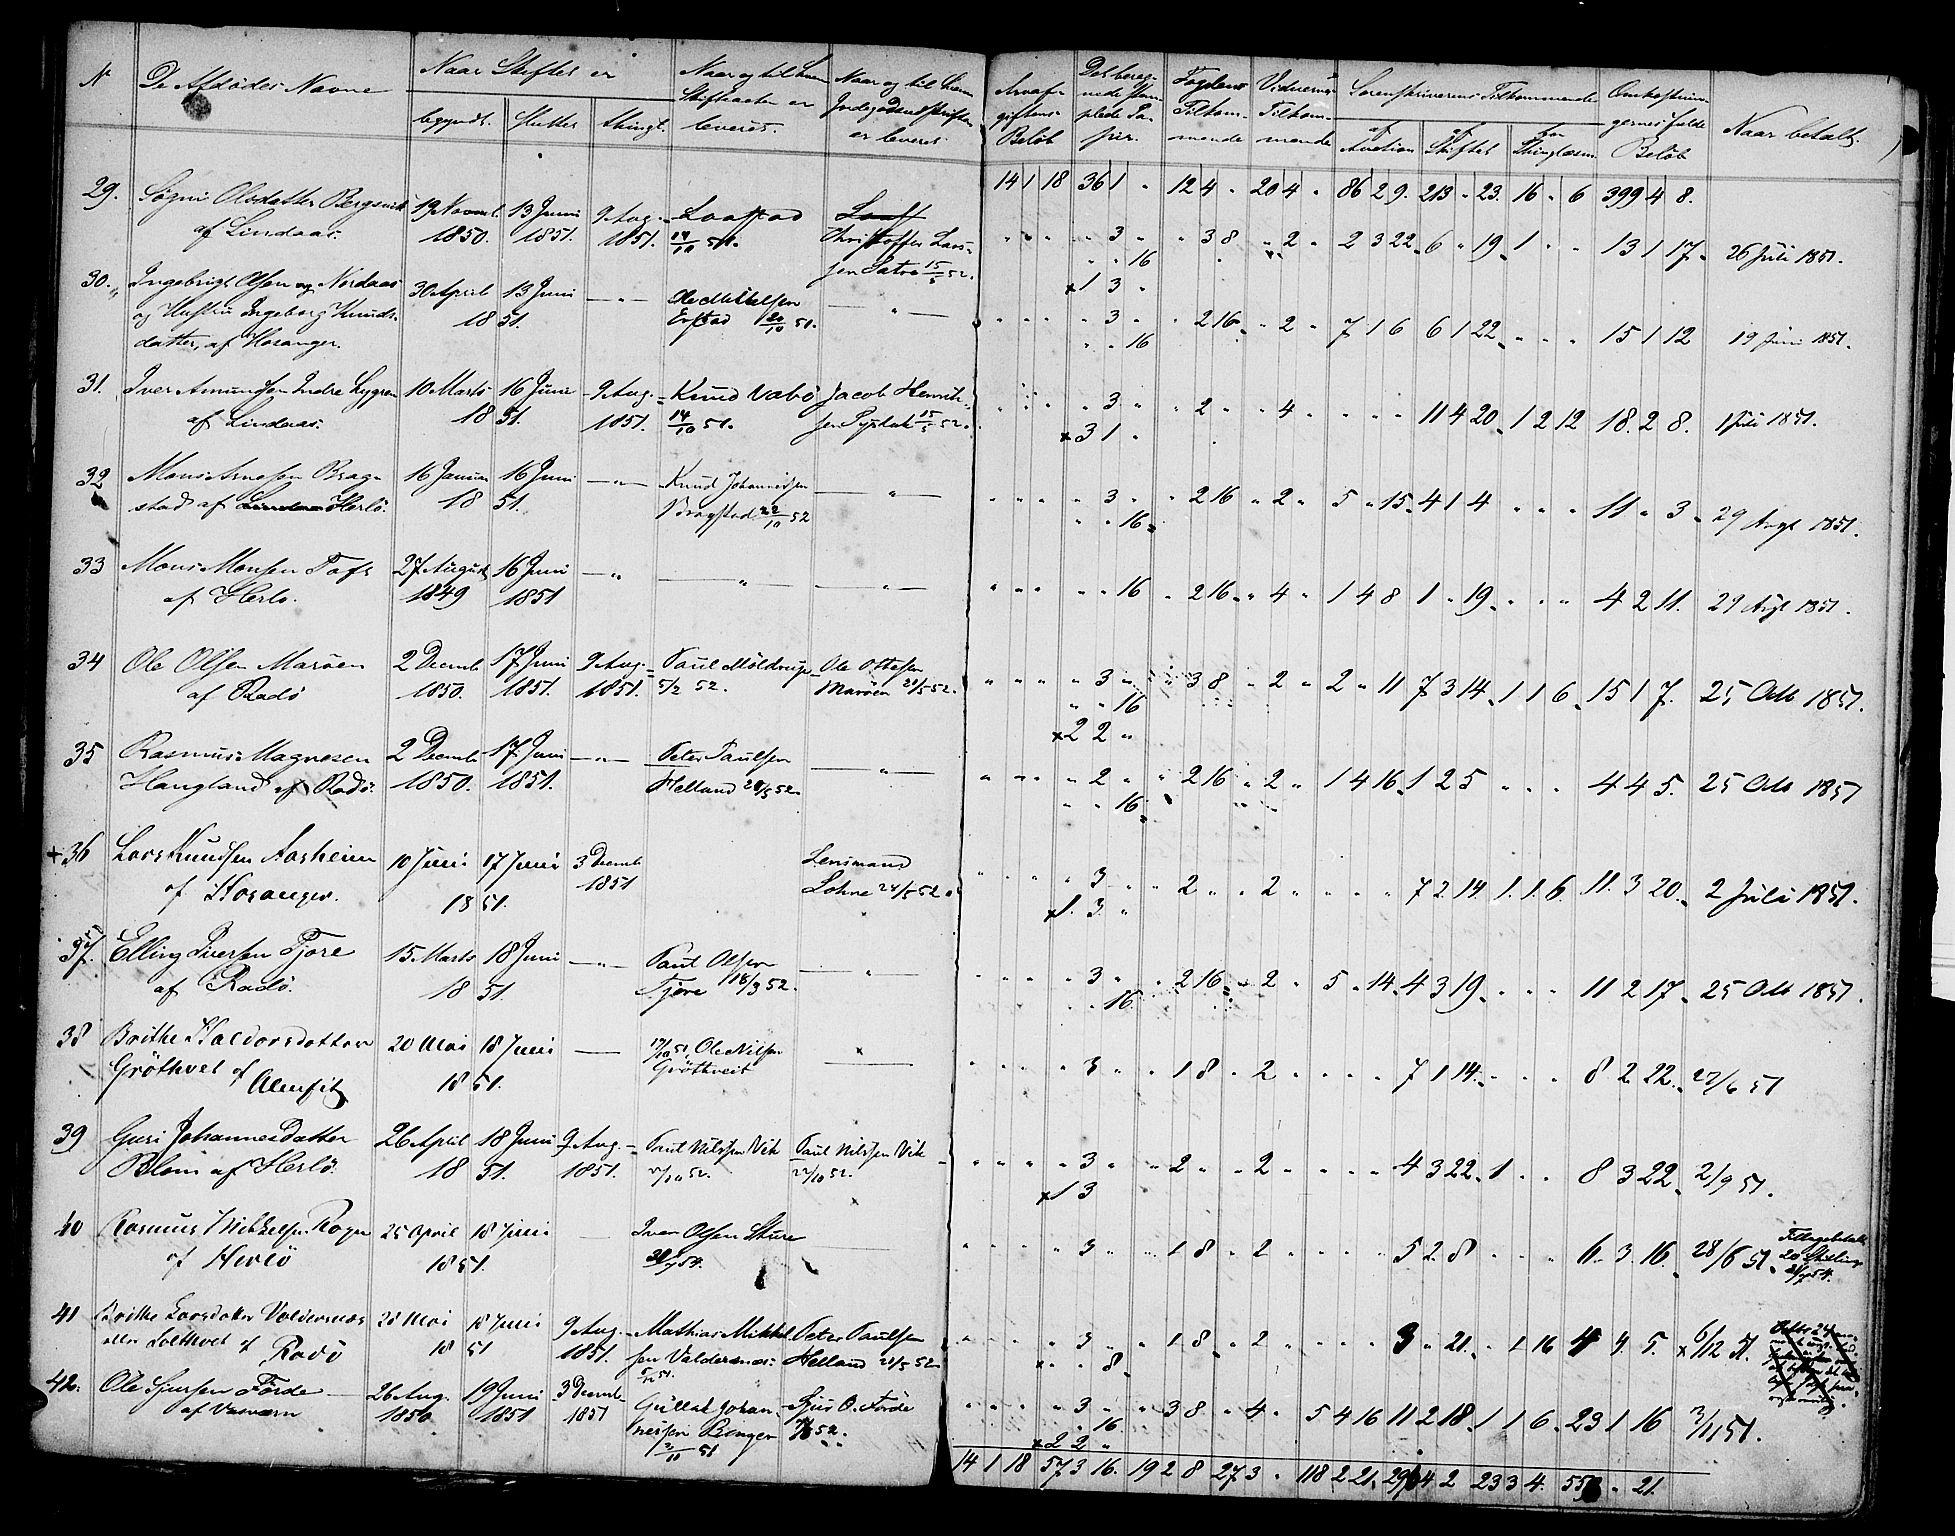 N
De Afdödes Navne
Naar Skiftet er
begyndt. sluttet thingl.
Naar og til hvem
Skifteacten er
leveret.
Naar og til hvem
er leveret.
Arveaf-
giftens
Beløb
Det bereg-
nede Stem-
plede Pa-
pir.
Fogdens
Tilkom-
mende
Vidnernes
Tilkom-
mende
Sorenskriverens Tilkommende
Auction Skiftet Thinglæsn.
Omkostnin-
gernes fulde
Beløb
Naar betalt.
14 1 18 36 1 " 12 4 " 20 4 " 86 2 9. 213 " 23. 16 " 6 399 4 8.
29. Søgni Olsdatter Bergsvik 19 Novemb. 13 Juni 9 Aug.
af Lindaas. 1850. 1851. 1851.
14/10 51.
Christoffer Lars-
sen Sætre 15/5 52.
" " " " 3 " " 3 8 " 2 " 2 3 22. 6 " 19. 1 " " 13 1 17. 26 Juli 1851.
" " 16
x 1 3 "
30. Ingebrigt Olsen og Nordaas 30 April 13 Juni — " —
og Hustru Ingeborg Knuds- 18 51.
datter, af Hosanger.
Ole Mikkelsen
20/10 51.
— " —
" " " " 3 " " 2 16. " 2 " 7 1 6 6 1 22. " " " 15 1 12 19 Juni 1851.
" " 16
31. Iver Amundsen Indre Lygren 10 Marts 16 Juni 9 Aug. Knud Vabö Jacob Henrik-
af Lindaas. 18 51. 1851. 14/10 51. sen 15/5 52.
" " " " 3 " " 2 " " 4 " " " " 11 4 20. 1 2 12 18. 2 8. 1 Juli 1851.
x 3 1 "
32 Mons Arnesen Brag- 16 Januar 16 Juni — " — Knud Johannessen — " —
stad af Herlö. 18 51. Bragstad 22/10 52
" " " " 3 " " 2 16 " 2 " 5 " 15. 4 1 4 " " " 11 " 3. 29 Augt 1851.
" " 16
33 Mons Monsen Toft 27 August 16 Juni — " — " — — " —
af Herlö. 1849 1851
" " " " " 16 " 2 16. " 4 " 1 4 8 1 " 19. " " " 4 2 11. 29 Augt 1851.
34 Ole Olsen Maröen 2 Decemb 17 Juni 9 Aug. Paul Möldrup Ole Ottesen
af Radö 1850. 1851. 1851. 5/2 52. Maröen 28/5 52.
" " " " 3 " " 3 8 " 2 " 2 " 11 7 3 14. 1 1 6. 15 1 7. 25 Octb 1851.
" " 16
x 2 2 "
35 Rasmus Magnesen 2 Decemb 17. Juni — " — Peter Paulsen — " —
Haugland af Radö. 1850. 1851. Helland 28/5 52.
" " " " 2 " " 2 16 " 2 " 1 4 16. 1 2 5 " " " 4 4 5. 25 Octb 1851
" " 16
+ 36 Lars Knudsen Aasheim 10 Juni 17 Juni 3 Decemb Lensmand
af Hosanger. 18 51. 1851 Lohne 24/5 52.
" " " " 3 " " 2 " " 2 " " " " 7 2. 14. 1. 1. 6. 11. 3 20. 2 Juli 1851.
x 1. 3. "
37. Elling Iversen Tjore 15 Marts 18 Juni — " — Paul Olsen — " —
af Radö. 18 51. Tjore 18/3 52.
" " " " 3 " " 2 16. " 2 " 5 " 14. 4 3 19. " " " 11 2 17. 25 Octb 1851.
" " 16.
38 Brithe Haldorsdatter 20 Mai 18 Juni — 17/10 51. Ole Nilsen — " —
Gröthvet af Alenfit 18 51. Gröthveit
" " " " 3 " " 1 8 " 2 " " " " 7 1 14. " " " 8 2 22. 27/6 51
39 Guri Johannesdatter 26 April 18 Juni 9 Aug. Paul Nilsen Vik Paul Nilsen Vik
Blom af Herlö. 18 51. 1851. 22/10 52. 22/10 52.
" " " " 3 " " 2 " " 2 " " " " 4 3 22. 1 " " 8 3 22. 2/9 51.
x 1 3
40 Rasmus Mikkelsen Rogn 25 April 18 Juni — Iver Olsen Sture —
af Herlö 18 51.
" " " " 3 " " 1 8 " 2 " " " " 5 2 8 " " " 6 " 3. 16. 28/6 51.
Tillagebetalt
20 Skilling
41 Brithe Larsdatter Valdersnæs 28 Mai 18 Juni 9 Aug. Mathias Mikkel- Peter Paulsen
eller Solthvet af Radö 18 51 1851. sen Valdersnæs. Helland 28/5 52.
" " " " 3 " " 1 8 " 2 " " " " 3 " 21. " 1 16 4 4 5. x 6/12 51.
x " " 8
42. Ole Sjursen Förde 26 Aug. 19 Juni 3 Decemb Gullak Johan- Sjur O. Förde
1850 1851 1851 nessen Benger
" " " " 3 " " 3 8. " 4 " 5 4 16 11 2 18. 1 1 6. 23 1 16 3/11 51.
" " 16.
x 2 2 "
14 1 18 57 3 16. 19 2 8 27 3 " 118 2 21. 4 2 23 3 4. " 21.